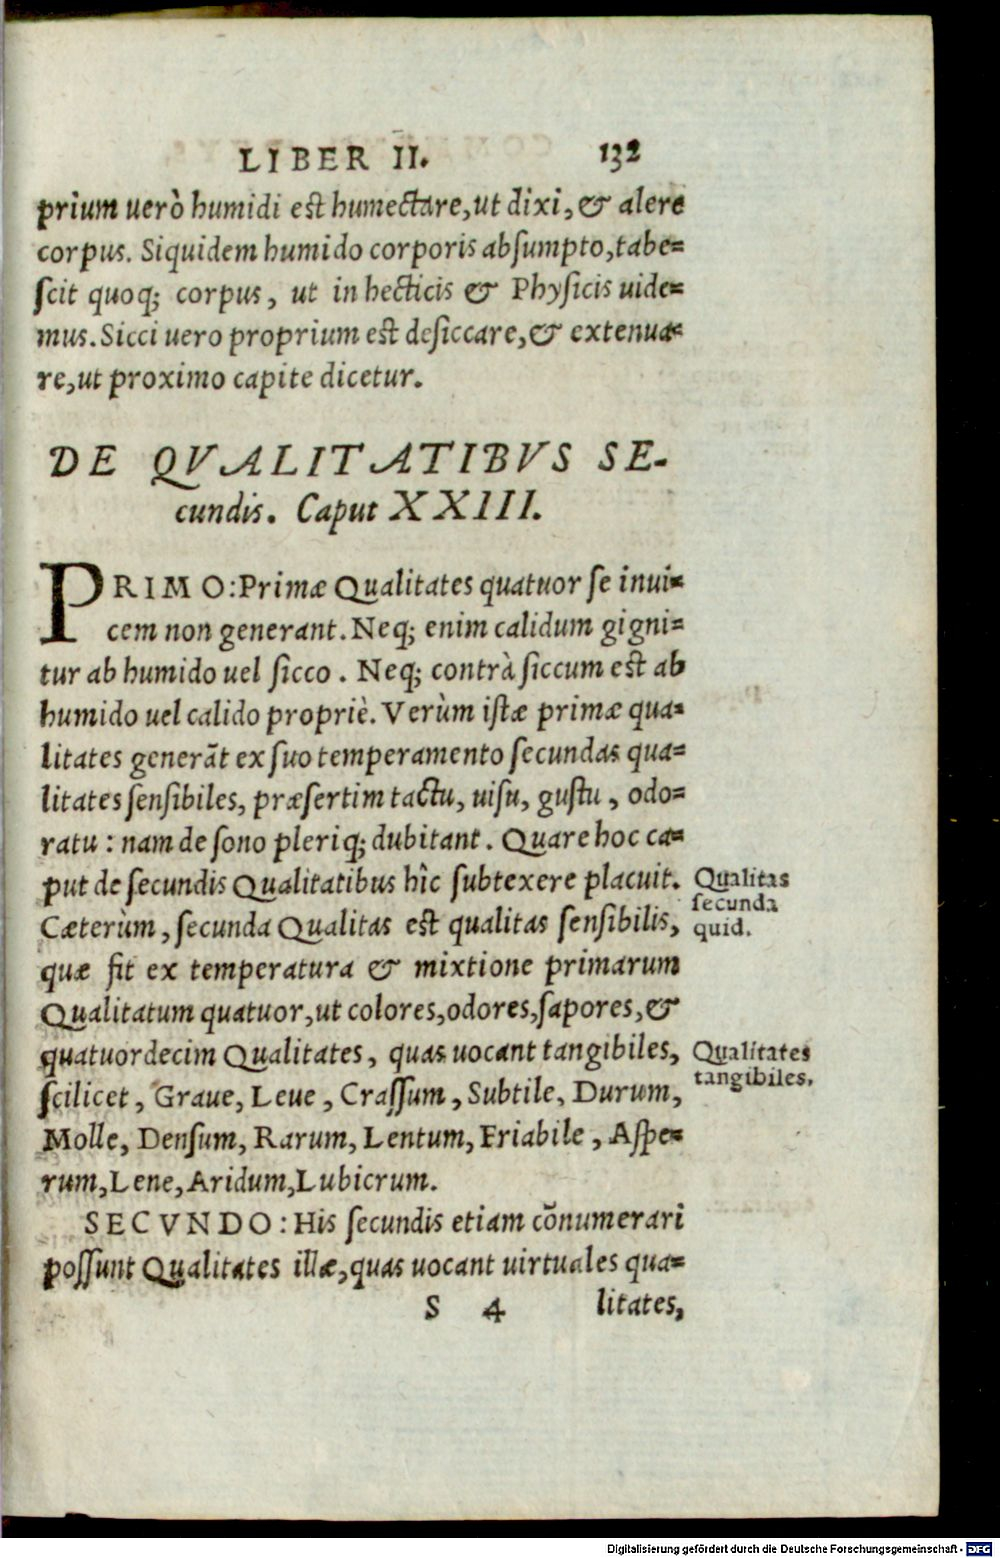 LIBER II. 132
prium uerò humidi est humectare, ut dixi, & alere
corpus. Siquidem humido corporis absumpto, tabe=
scit quoq; corpus, ut in hecticis & Physicis uide=
mus. Sicci uero proprium est desiccare, & extenua=
re, ut proximo capite dicetur.
DE QVALITATIBVS SE-
cundis. Caput XXIII.
PRIMO: Primæ Qualitates quatuor se inui=
cem non generant. Neq; enim calidum gigni=
tur ab humido uel sicco. Neq; contrà siccum est ab
humido uel calido propriè. Verùm istæ primæ qua=
litates generãt ex suo temperamento secundas qua=
litates sensibiles, præsertim tactu, uisu, gustu, odo=
ratu: nam de sono pleriq; dubitant. Quare hoc ca=
put de secundis Qualitatibus hîc subtexere placuit.
Cæterùm, secunda Qualitas est qualitas sensibilis,
quæ fit ex temperatura & mixtione primarum
Qualitatum quatuor, ut colores, odores, sapores, &
quatuordecim Qualitates, quas uocant tangibiles,
scilicet, Graue, Leue, Crassum, Subtile, Durum,
Molle, Densum, Rarum, Lentum, Friabile, Aspe=
rum, Lene, Aridum, Lubicrum.
SECVNDO: His secundis etiam cõnumerari
possunt Qualitates illæ, quas uocant uirtuales qua=
S 4 litates,
Qualitas
secunda
quid.
Qualitates
tangibiles.
Digitalisierung gefördert durch die Deutsche Forschungsgemeinschaft - DFG